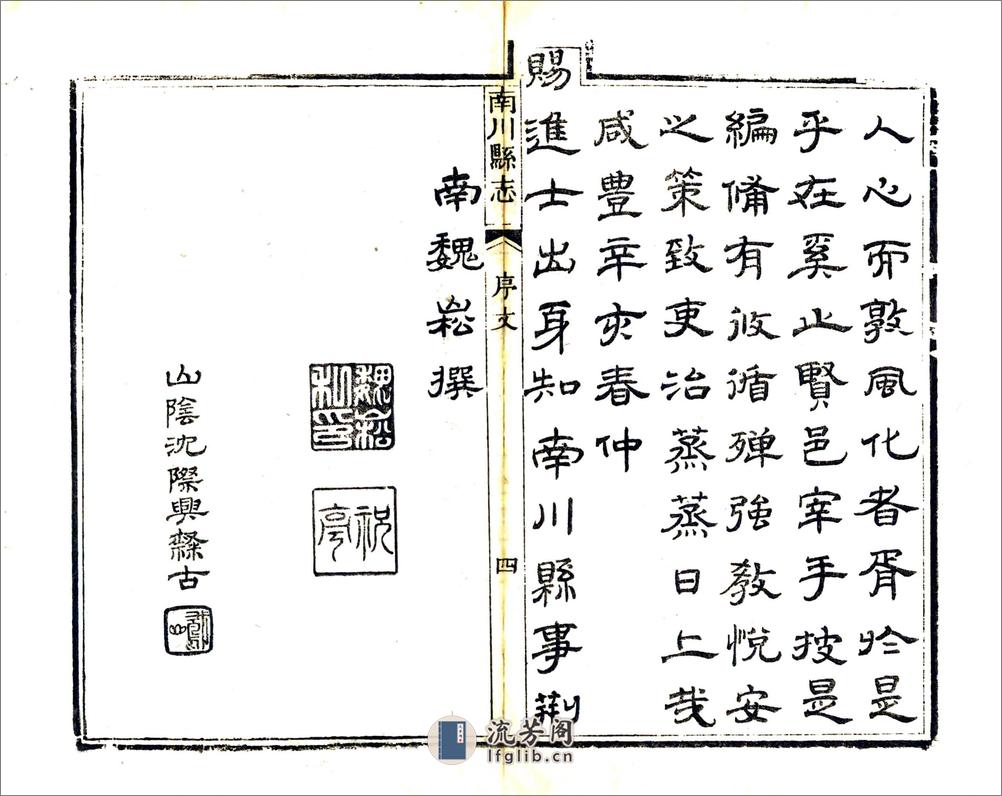 人心而敦風化者胥於是
乎在奚止賢邑宰手披是
編俻有攸循殫強教悅安
之策致吏治蒸蒸日上哉
咸豐辛亥春仲
賜進士出身知南川縣事荆
南川縣志 序文 四
南魏崧撰
魏崧私印
祝亭
山陰沈際興隸古
流芳阁
lfglib.cn